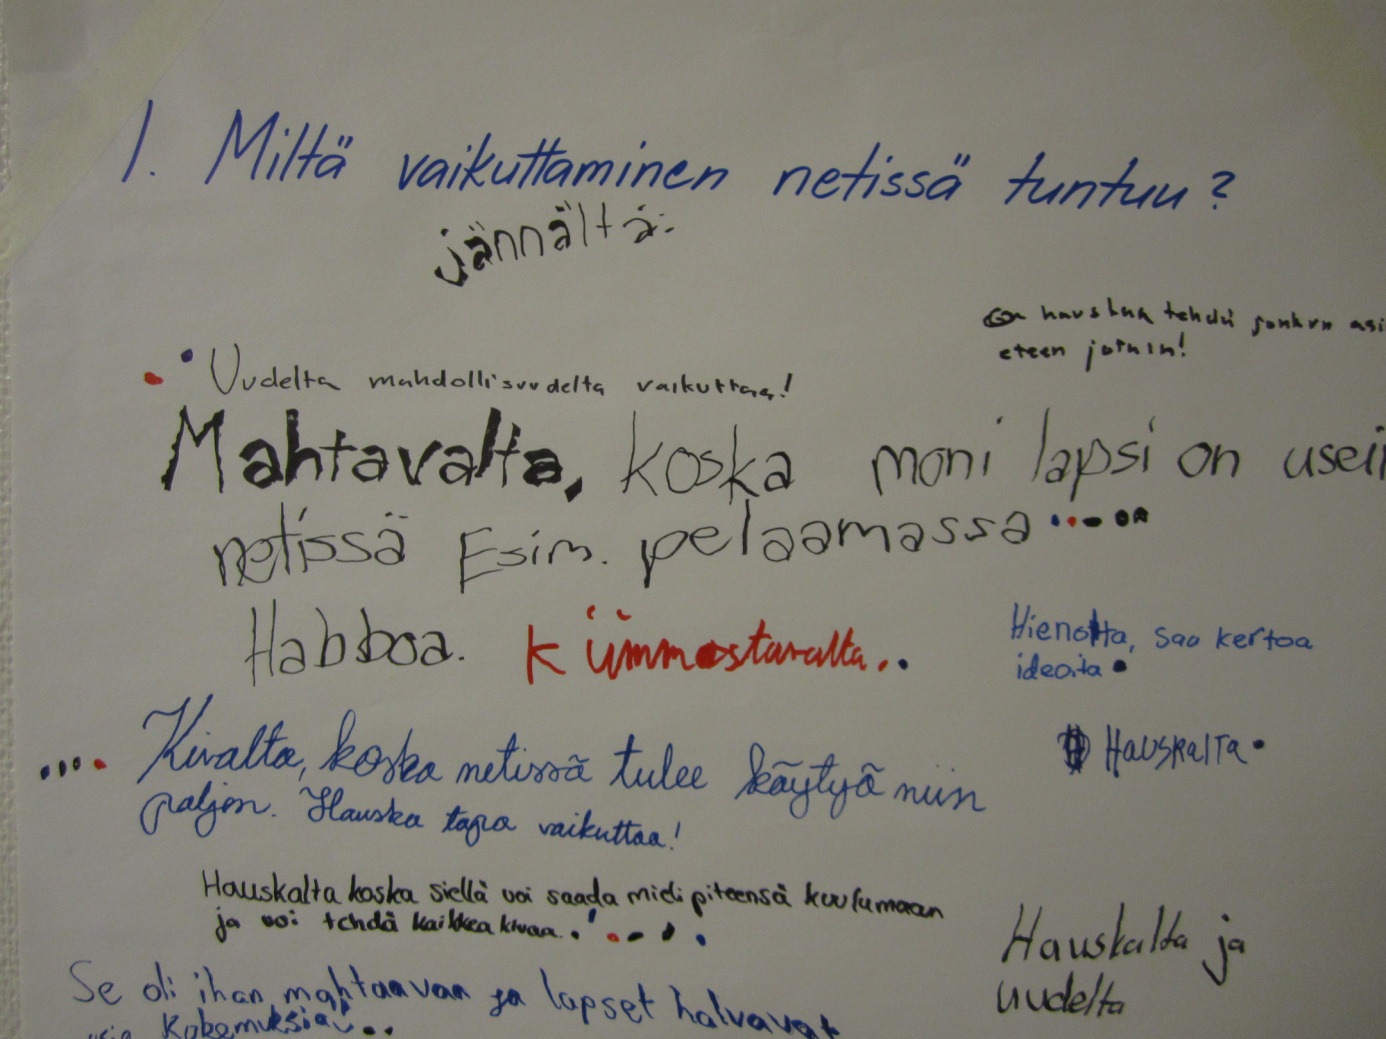 1. Miltä vaikuttaminen netissä tuntuu?
jännältä:
on hauskaa tehdä jonkun asi
eteen jotain!
Uudelta mahdollisuudelta vaikuttaa!
Mahtavalta, koska moni lapsi on usei
netissä Esim. pelaamassa
Habboa. Kiinnostavalta..
Hienolta, saa kertoa
ideoita
Kivalta, koska netissä tulee käytyä niin
paljon. Hauska tapa vaikuttaa!
Hauskalta
Hauskalta koska siellä voi saada mielipiteensä kuulumaan
ja voi tehdä kaikkea kivaa.
Hauskalta ja
uudelta
Se oli ihan mahtavaa ja lapset haluavat
kokemuksia